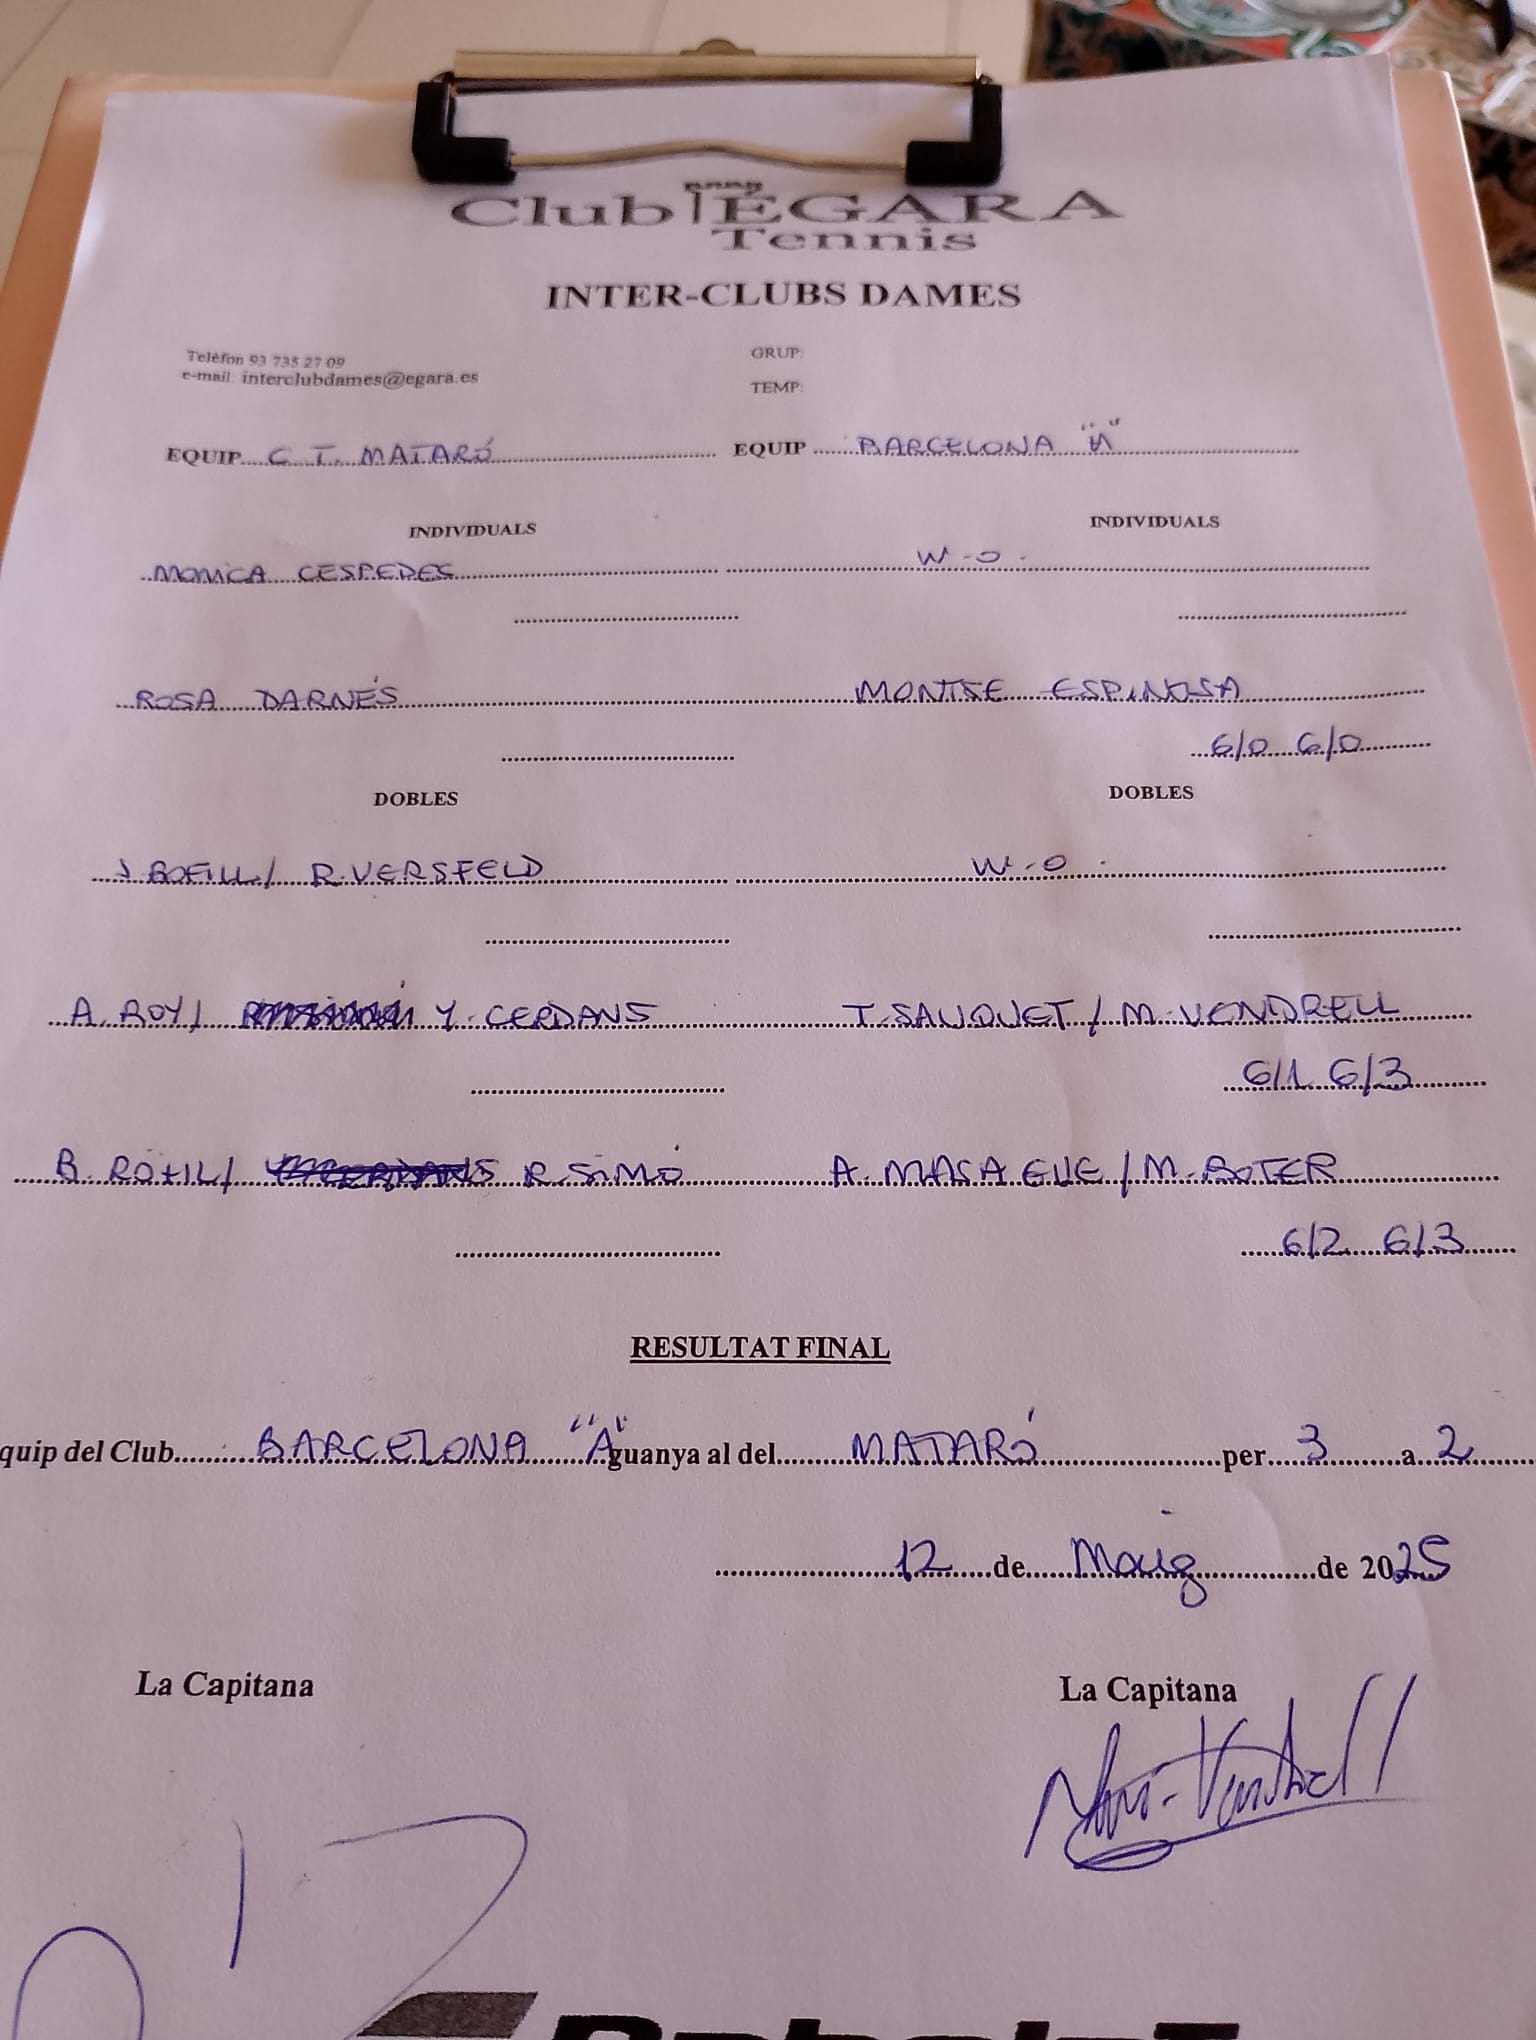 Club EGARA
Tennis
INTER-CLUBS DAMES
Telèfon 93 735 27 09
e-mail: interclubdames@egara.es
GRUP:
TEMP:
EQUIP C. T. MATARÓ EQUIP BARCELONA "A"
INDIVIDUALS INDIVIDUALS
MONICA CESPEDES W.O.
ROSA DARNÉS MONTSE ESPINOSA
6/0 6/0
DOBLES DOBLES
J. BOFILL / R. VERSFELD W.O.
A. ROY / Y. CERDANS T. SAUQUET / M. VENDRELL
6/1 6/3
B. / R. SIMÓ A. MASAGUE / M. BOTER
6/2 6/3
RESULTAT FINAL
quip del Club BARCELONA "A" guanya al del MATARÓ per 3 a 2
12 de Maig de 2025
La Capitana La Capitana